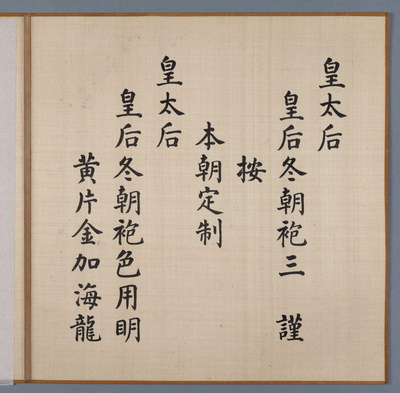 皇太后
皇后冬朝袍三 謹
按
本朝定制
皇太后
皇后冬朝袍色用明
黃片金加海龍